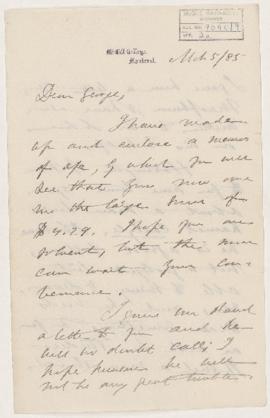 McGill College,
Montreal.
Mch 5/85
Dear George,
I have made
up and enclose a memo
of a/c, by which you will
see that you now owe
me the large sum of
$4.29. I hope you are
solvent, but this
can wait your con-
venience.
I gave
a letter to you and he
will no doubt call; I
hope however he will
not be any great trouble